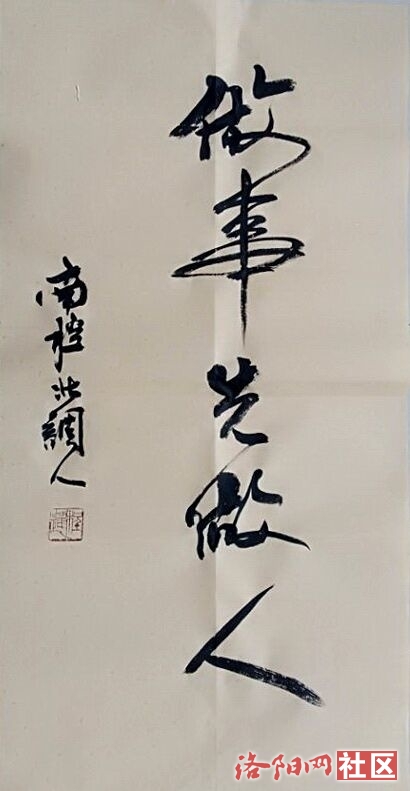 做事先做人
南腔北調人
洛阳网社区